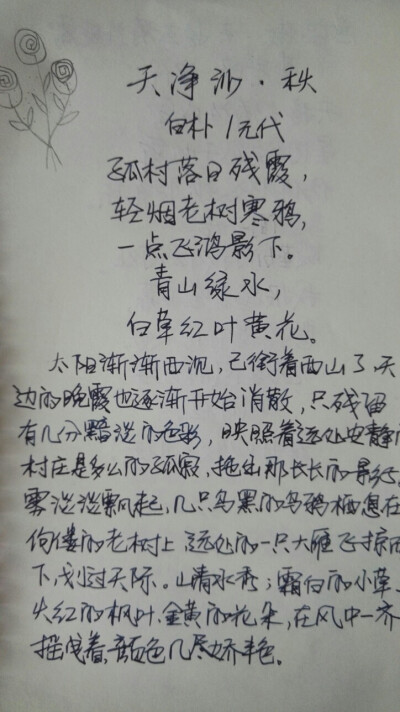 天净沙·秋
白朴/元代
孤村落日残霞，
轻烟老树寒鸦，
一点飞鸿影下。
青山绿水，
白草红叶黄花。
太阳渐渐西沉，已衔着西山了，天
边的晚霞也逐渐开始消散，只残留
有几分黯淡的色彩，映照着远处安静的
村庄是多么的孤寂，拖出那长长的影子。
雾淡淡飘起，几只乌黑的乌鸦栖息在
佝偻的老树上，远处的一只大雁飞掠而
下，划过天际。山清水秀；霜白的小草、
火红的枫叶、金黄的花朵，在风中一齐
摇曳着，颜色几尽娇艳。